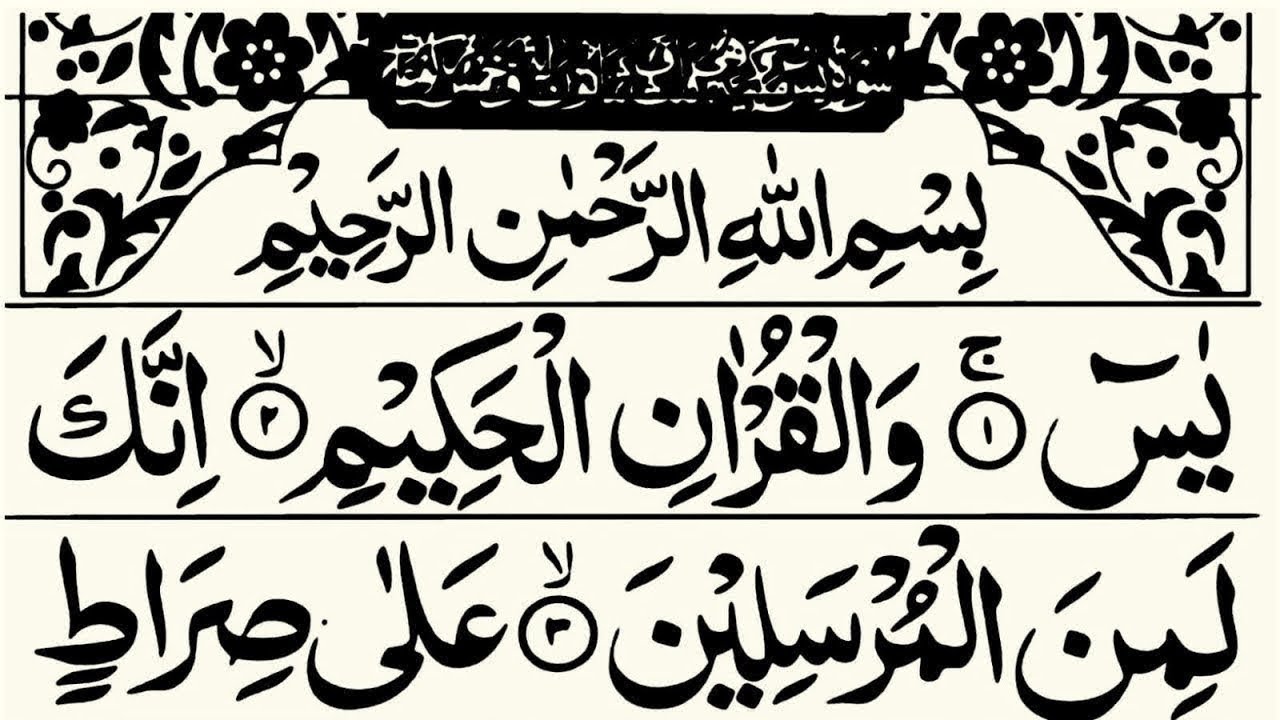 بِسْمِ اللّٰهِ الرَّحْمٰنِ الرَّحِيْمِ
يٰسٓ ۚ ﴿۱﴾ وَالْقُرْاٰنِ الْحَكِيْمِ ۙ ﴿۲﴾ اِنَّكَ
لَمِنَ الْمُرْسَلِيْنَ ۙ ﴿۳﴾ عَلٰى صِرَاطٍ